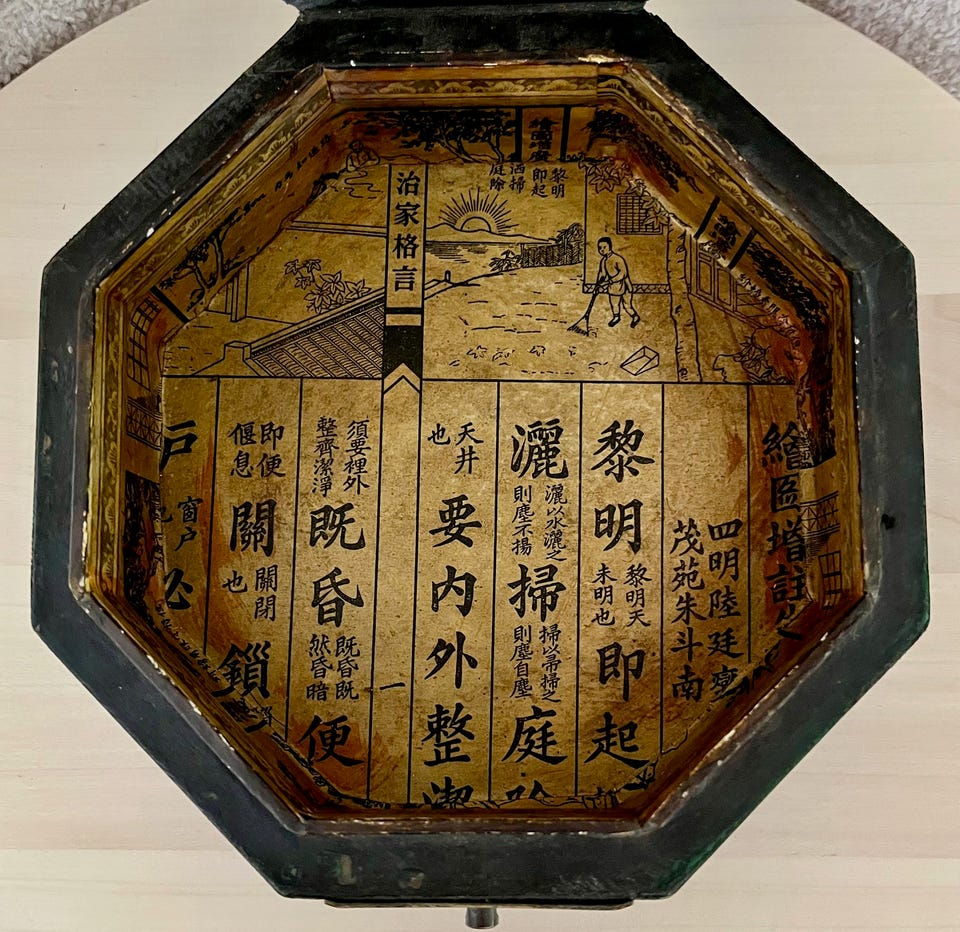 黎明
即起
洒掃
庭除
治家格言
繪圖增註
四明陸廷
茂苑朱斗南
黎明 黎明天未明也 即起
灑 灑以水灑之則塵不揚 掃 掃以帚掃之則塵自塵 庭除
天井也 要内外整潔
一
須要裡外整齊潔淨 既昏 既昏既然昏暗 便
即便偃息 關 關閉也 鎖
戶 窗戶 必